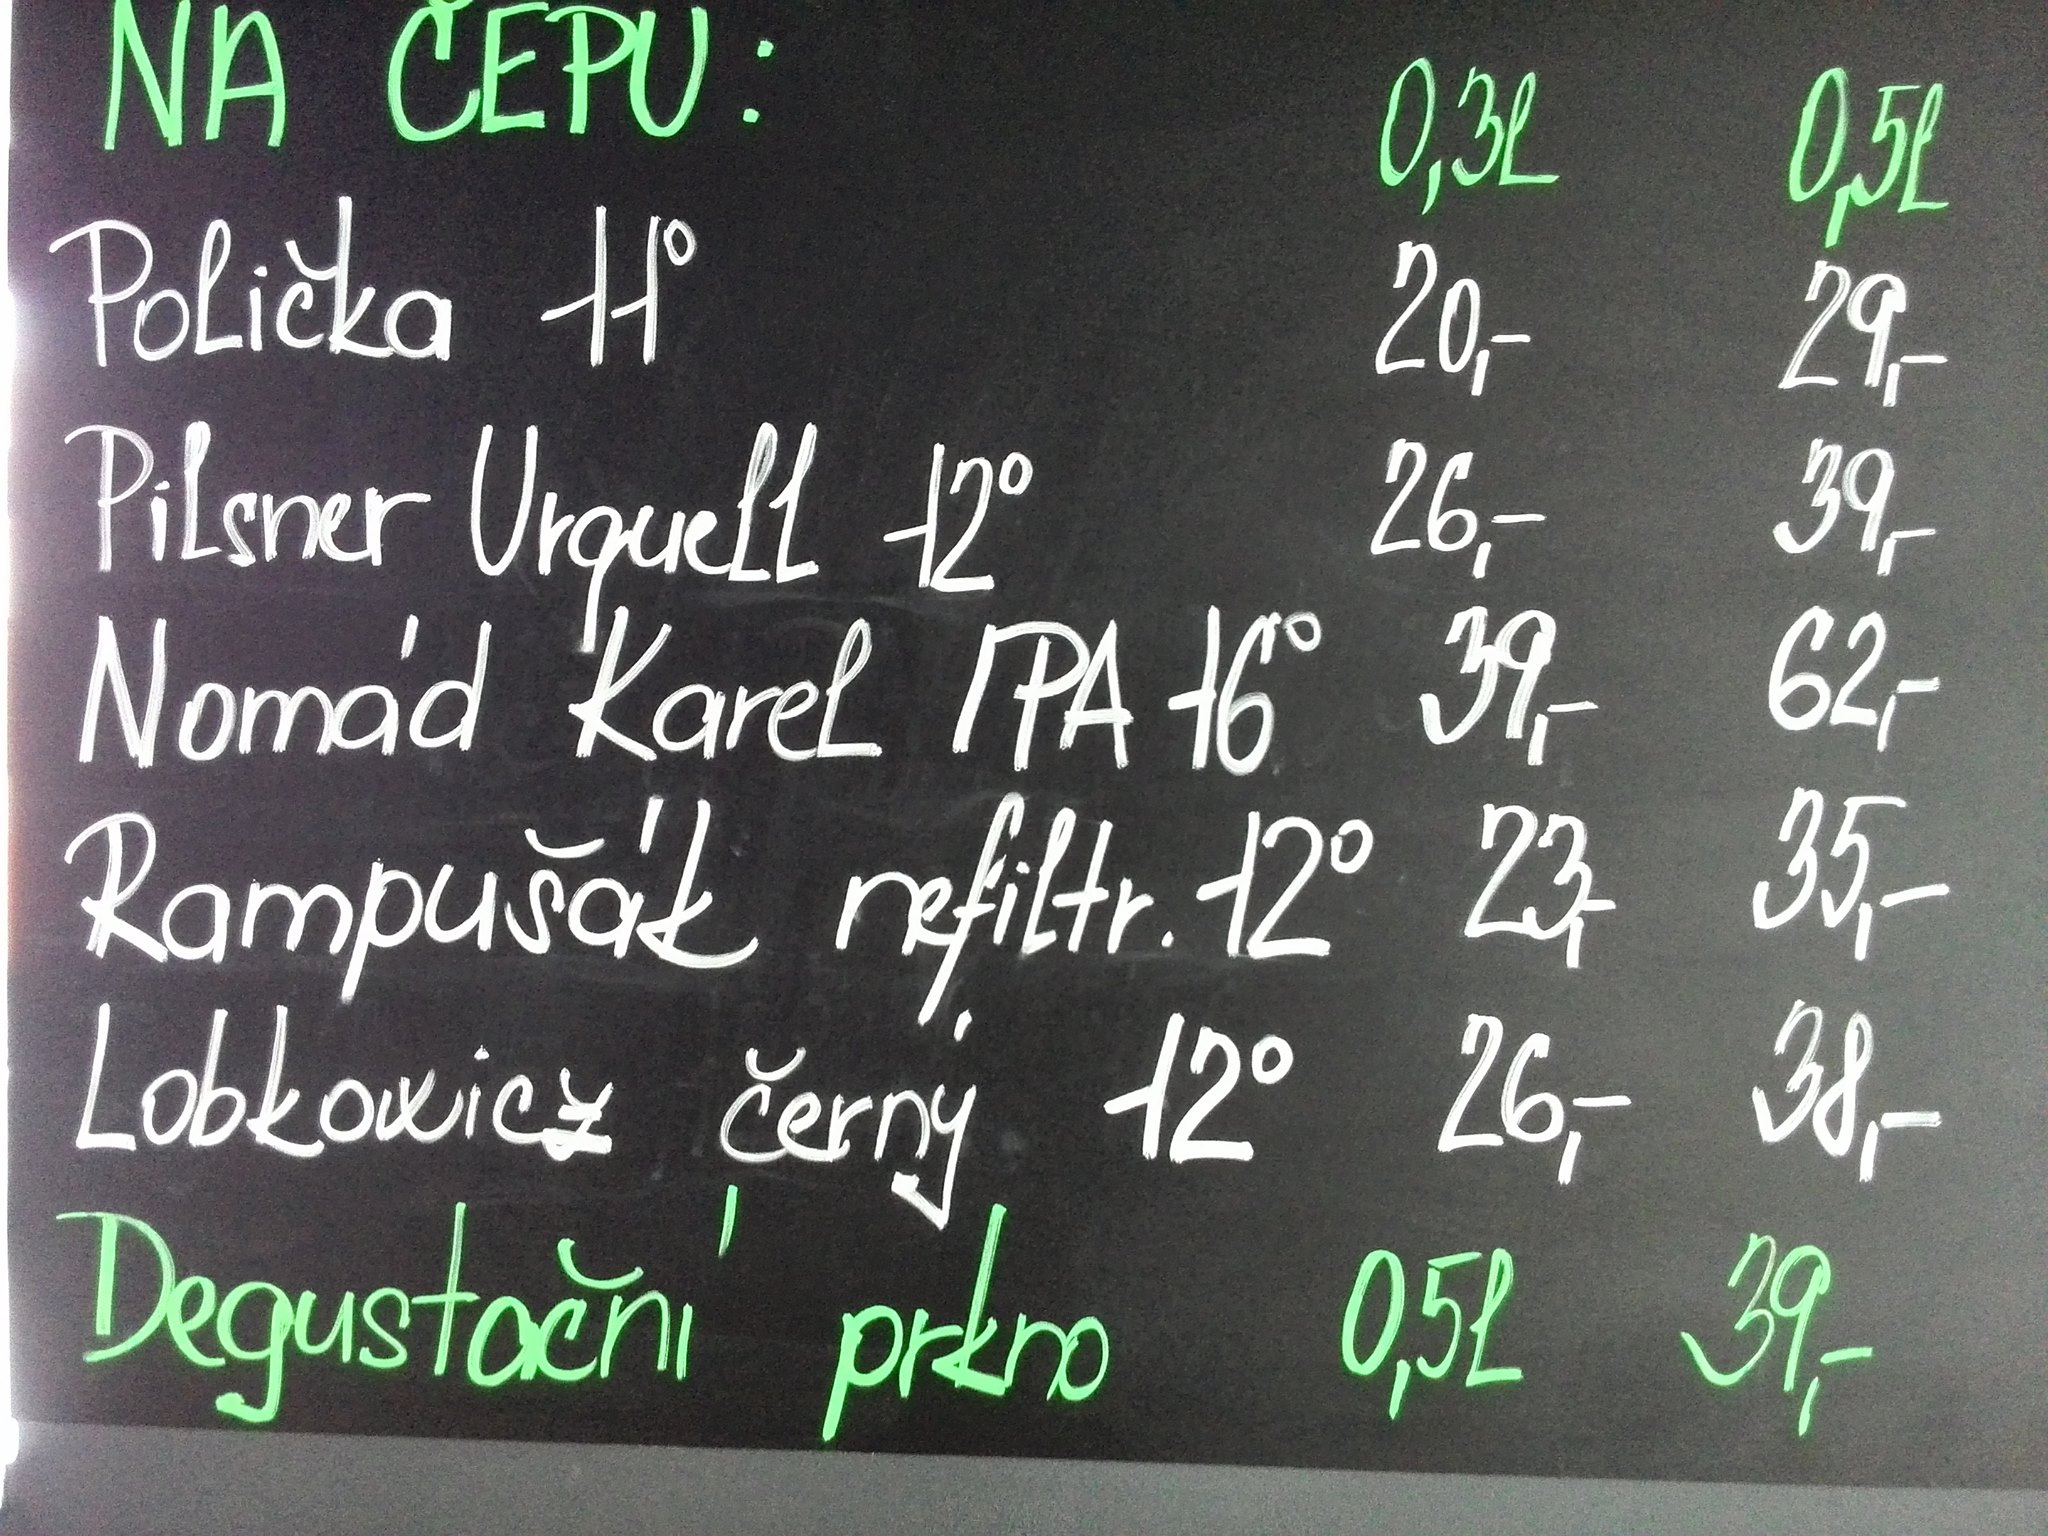 NA ČEPU: 0,3l 0,5l
Polička 11° 20,- 29,-
Pilsner Urquell 12° 26,- 39,-
Nomád Karel IPA 16° 39,- 62,-
Rampušák nefiltr. 12° 23,- 35,-
Lobkowicz černý 12° 26,- 38,-
Degustační prkno 0,5l 39,-